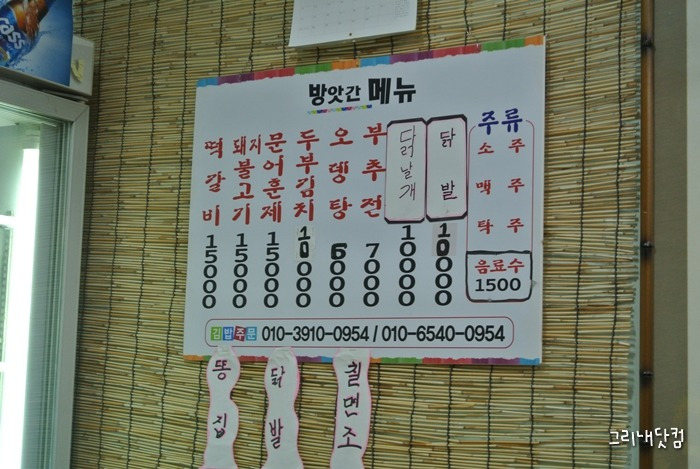 Cass
방앗간 메뉴
떡갈비 15000
돼지불고기 15000
문어훈제 15000
두부김치 10000
오뎅탕 6000
부추전 7000
닭날개 10000
닭발 10000
주류
소주
맥주
탁주
음료수
1500
김밥주문 010-3910-0954 / 010-6540-0954
똥집
닭발
칠면조
그리내닷컴